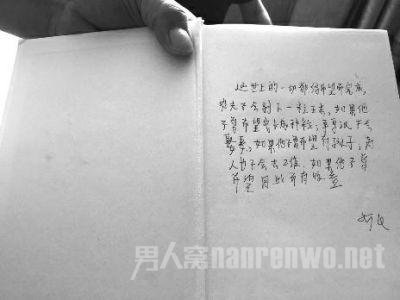 这世上的一切都借希望而完成,
农夫不会剥下一粒玉米,如果他
不曾希望它长成种粒;单身汉不会
娶妻,如果他不曾希望有孩子;商
人也不会去工作,如果他不曾
希望因此而有收益
男人窝nanrenwo.net